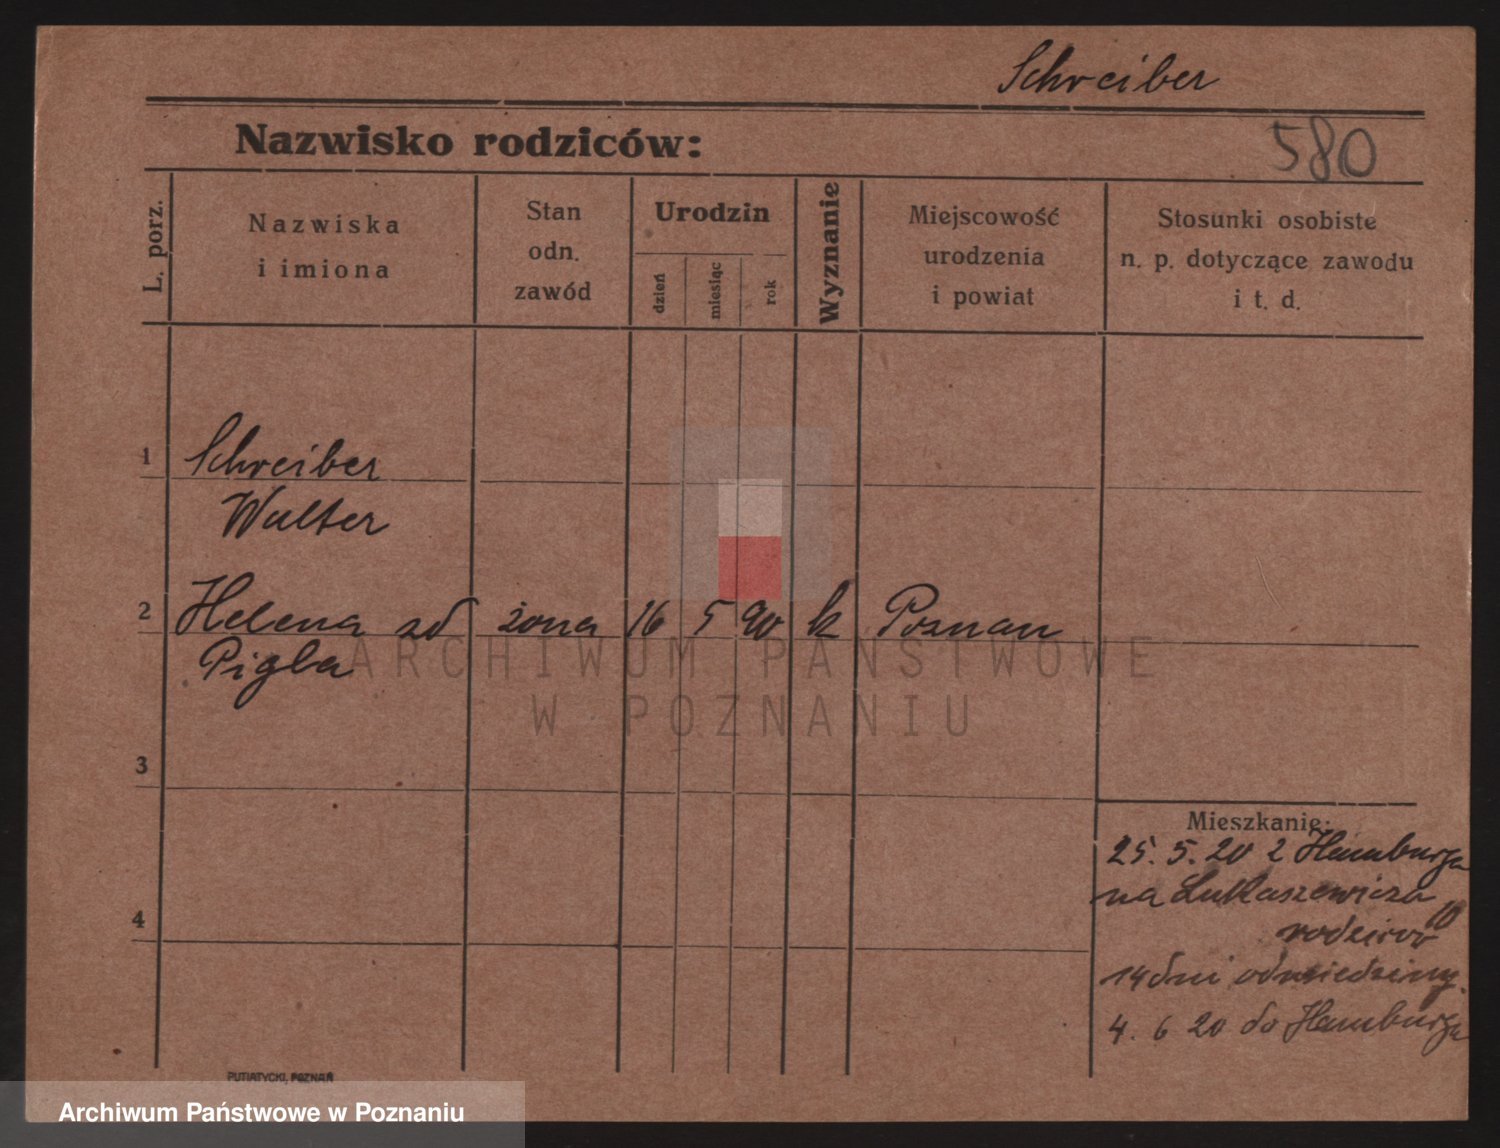 Schreiber
Nazwisko rodziców:
580
L. porz.
Nazwiska
i imiona
Stan
odn.
zawód
Urodzin
dzień
miesiąc
rok
Wyznanie
Miejscowość
urodzenia
i powiat
Stosunki osobiste
n. p. dotyczące zawodu
i t. d.
1 Schreiber
Walter
2 Helena zd żona 16 5 90 k Poznan
Pigla
ARCHIWUM PAŃSTWOWE
W POZNANIU
3
Mieszkanie:
25. 5. 20 z Hamburga
na Łukaszewicza 10
4
14 dni
4. 6 20 do Hamburga
PUTIATYCKI, POZNAŃ
Archiwum Państwowe w Poznaniu